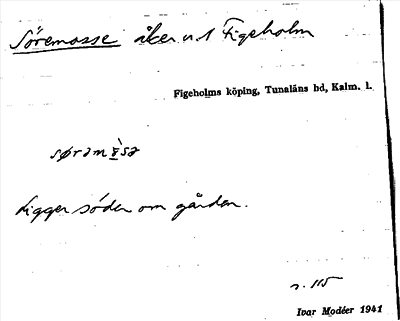 Söremosse åker n 1 Figeholm
Figeholms köping, Tunaläns hd, Kalm. l.
Ligger söder om gården.
s. 115
Ivar Modéer 1941